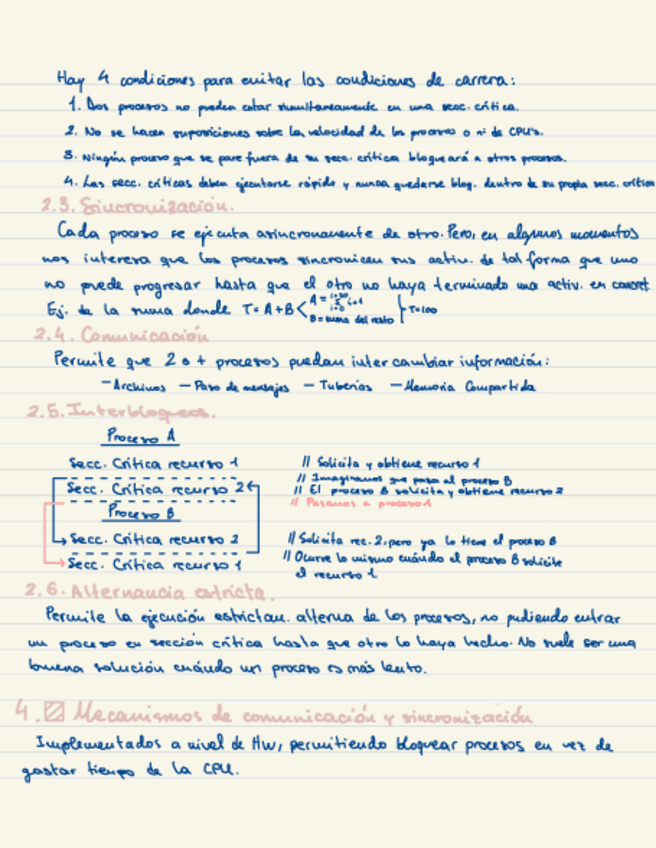 Hay 4 condiciones para evitar las condiciones de carrera:
1. Dos procesos no pueden estar simultáneamente en una secc. crítica.
2. No se hacen suposiciones sobre la velocidad de los procesos o nº de CPU's.
3. Ningún proceso que se pare fuera de su secc. crítica bloqueará a otros procesos.
4. Las secc. críticas deben ejecutarse rápido y nunca quedarse bloq. dentro de su propia secc. crítica
2.3. Sincronización.
Cada proceso se ejecuta asíncronamente de otro. Pero, en algunos momentos
nos interesa que los procesos sincronicen sus activ. de tal forma que uno
no puede progresar hasta que el otro no haya terminado una activ. en concret
Ej. de la suma donde T=A+B A= B=suma del resto T=100
2.4. Comunicación
Permite que 2 o + procesos puedan intercambiar información:
- Archivos - Paso de mensajes - Tuberías - Memoria Compartida
2.5. Interbloqueos.
Proceso A
Secc. Crítica recurso 1 // Solicita y obtiene recurso 1
// Imaginamos que pasa al proceso B
Secc. Crítica recurso 2 // El proceso B solicita y obtiene recurso 2
Proceso B // Pasamos a proceso
Secc. Crítica recurso 2 // Solicita rec. 2, pero ya lo tiene el proceso B
Secc. Crítica recurso 1 // Ocurre lo mismo cuándo el proceso B solicite
el recurso 1
2.6. Alternancia estricta.
Permite la ejecución estrictam. alterna de los procesos, no pudiendo entrar
un proceso en sección crítica hasta que otro lo haya hecho. No suele ser una
buena solución cuándo un proceso es más lento.
4. Mecanismos de comunicación y sincronización
Implementados a nivel de HW, permitiendo bloquear procesos en vez de
gastar tiempo de la CPU.